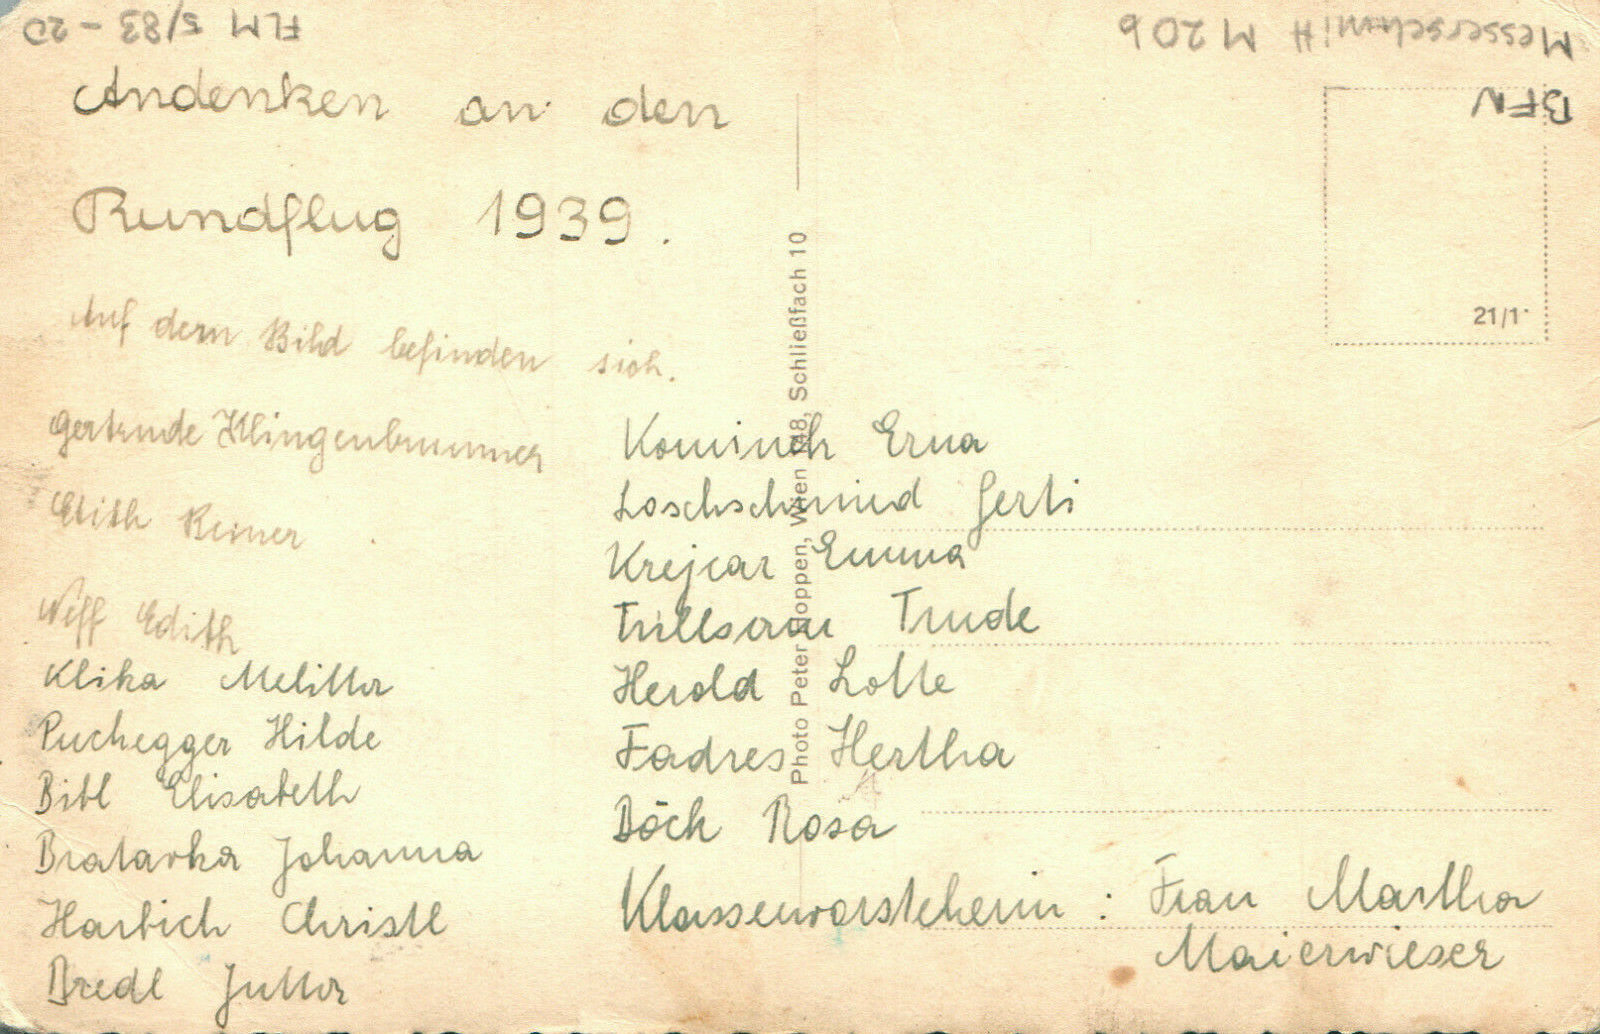 FLM 5/83 - 20
Messerschmitt M 20b
BFW
Andenken an den
Rundflug 1939.
Auf dem Bild befinden sich.
Gertrude Klingenbrunner
Edith Reiner
Neff Edith
Klika Melitta
Puchegger Hilde
Bibl Elisabeth
Bratavka Johanna
Harbich Christl
Bredl Jutta
Kominek Erna
Loschschmied Gerti
Krejcar Emma
Trude
Herold Lotte
Fadres Hertha
Böck Rosa
Klassenvorsteherin : Frau Martha
Maierwieser
Photo Peter Hoppen, Wien Schließfach 10
21/1